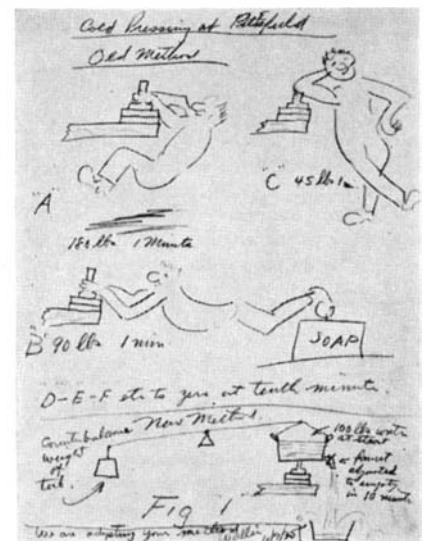 Cold Pressing at Pittsfield
Old Method
"A"
180 lbs 1 Minute
"C" 45 lbs 1 m
"B" 90 lbs 1 min
SOAP
D-E-F etc to zero at tenth minute.
New Method.
Counterbalance
weight
of
tub.
100 lbs water
at start
faucet
adjusted
to empty
in 10 minutes
Fig 1
We are adopting your method